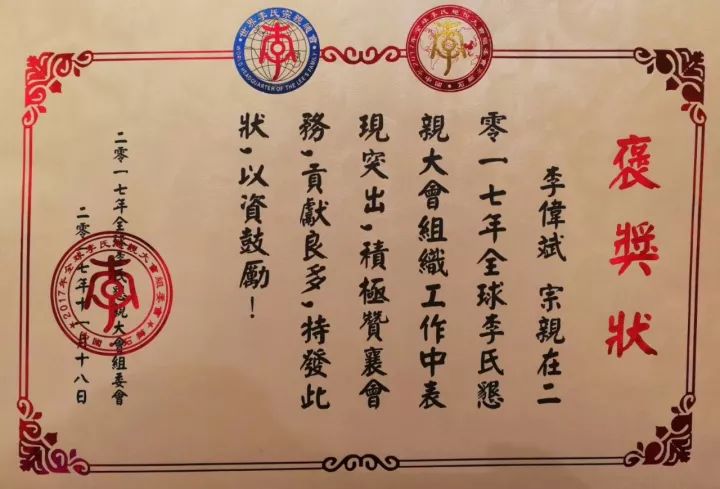 世界李氏宗親總會
WORLD HEADQUARTER OF THE LEE'S FAMILY
褒獎狀
李偉斌 宗親在二
零一七年全球李氏懇
親大會組織工作中表
現突出,積極贊襄會
務,貢獻良多,特發此
狀,以資鼓勵!
二零一七年全球李氏懇親大會組委會
二零一七年十一月十八日
2017年全球李氏懇親大會組委會